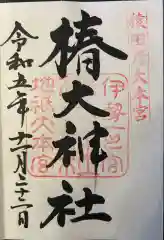 猿田彦大本宮
伊勢一之宮
椿大神社
地祇大本宮
令和五年十二月二十二日